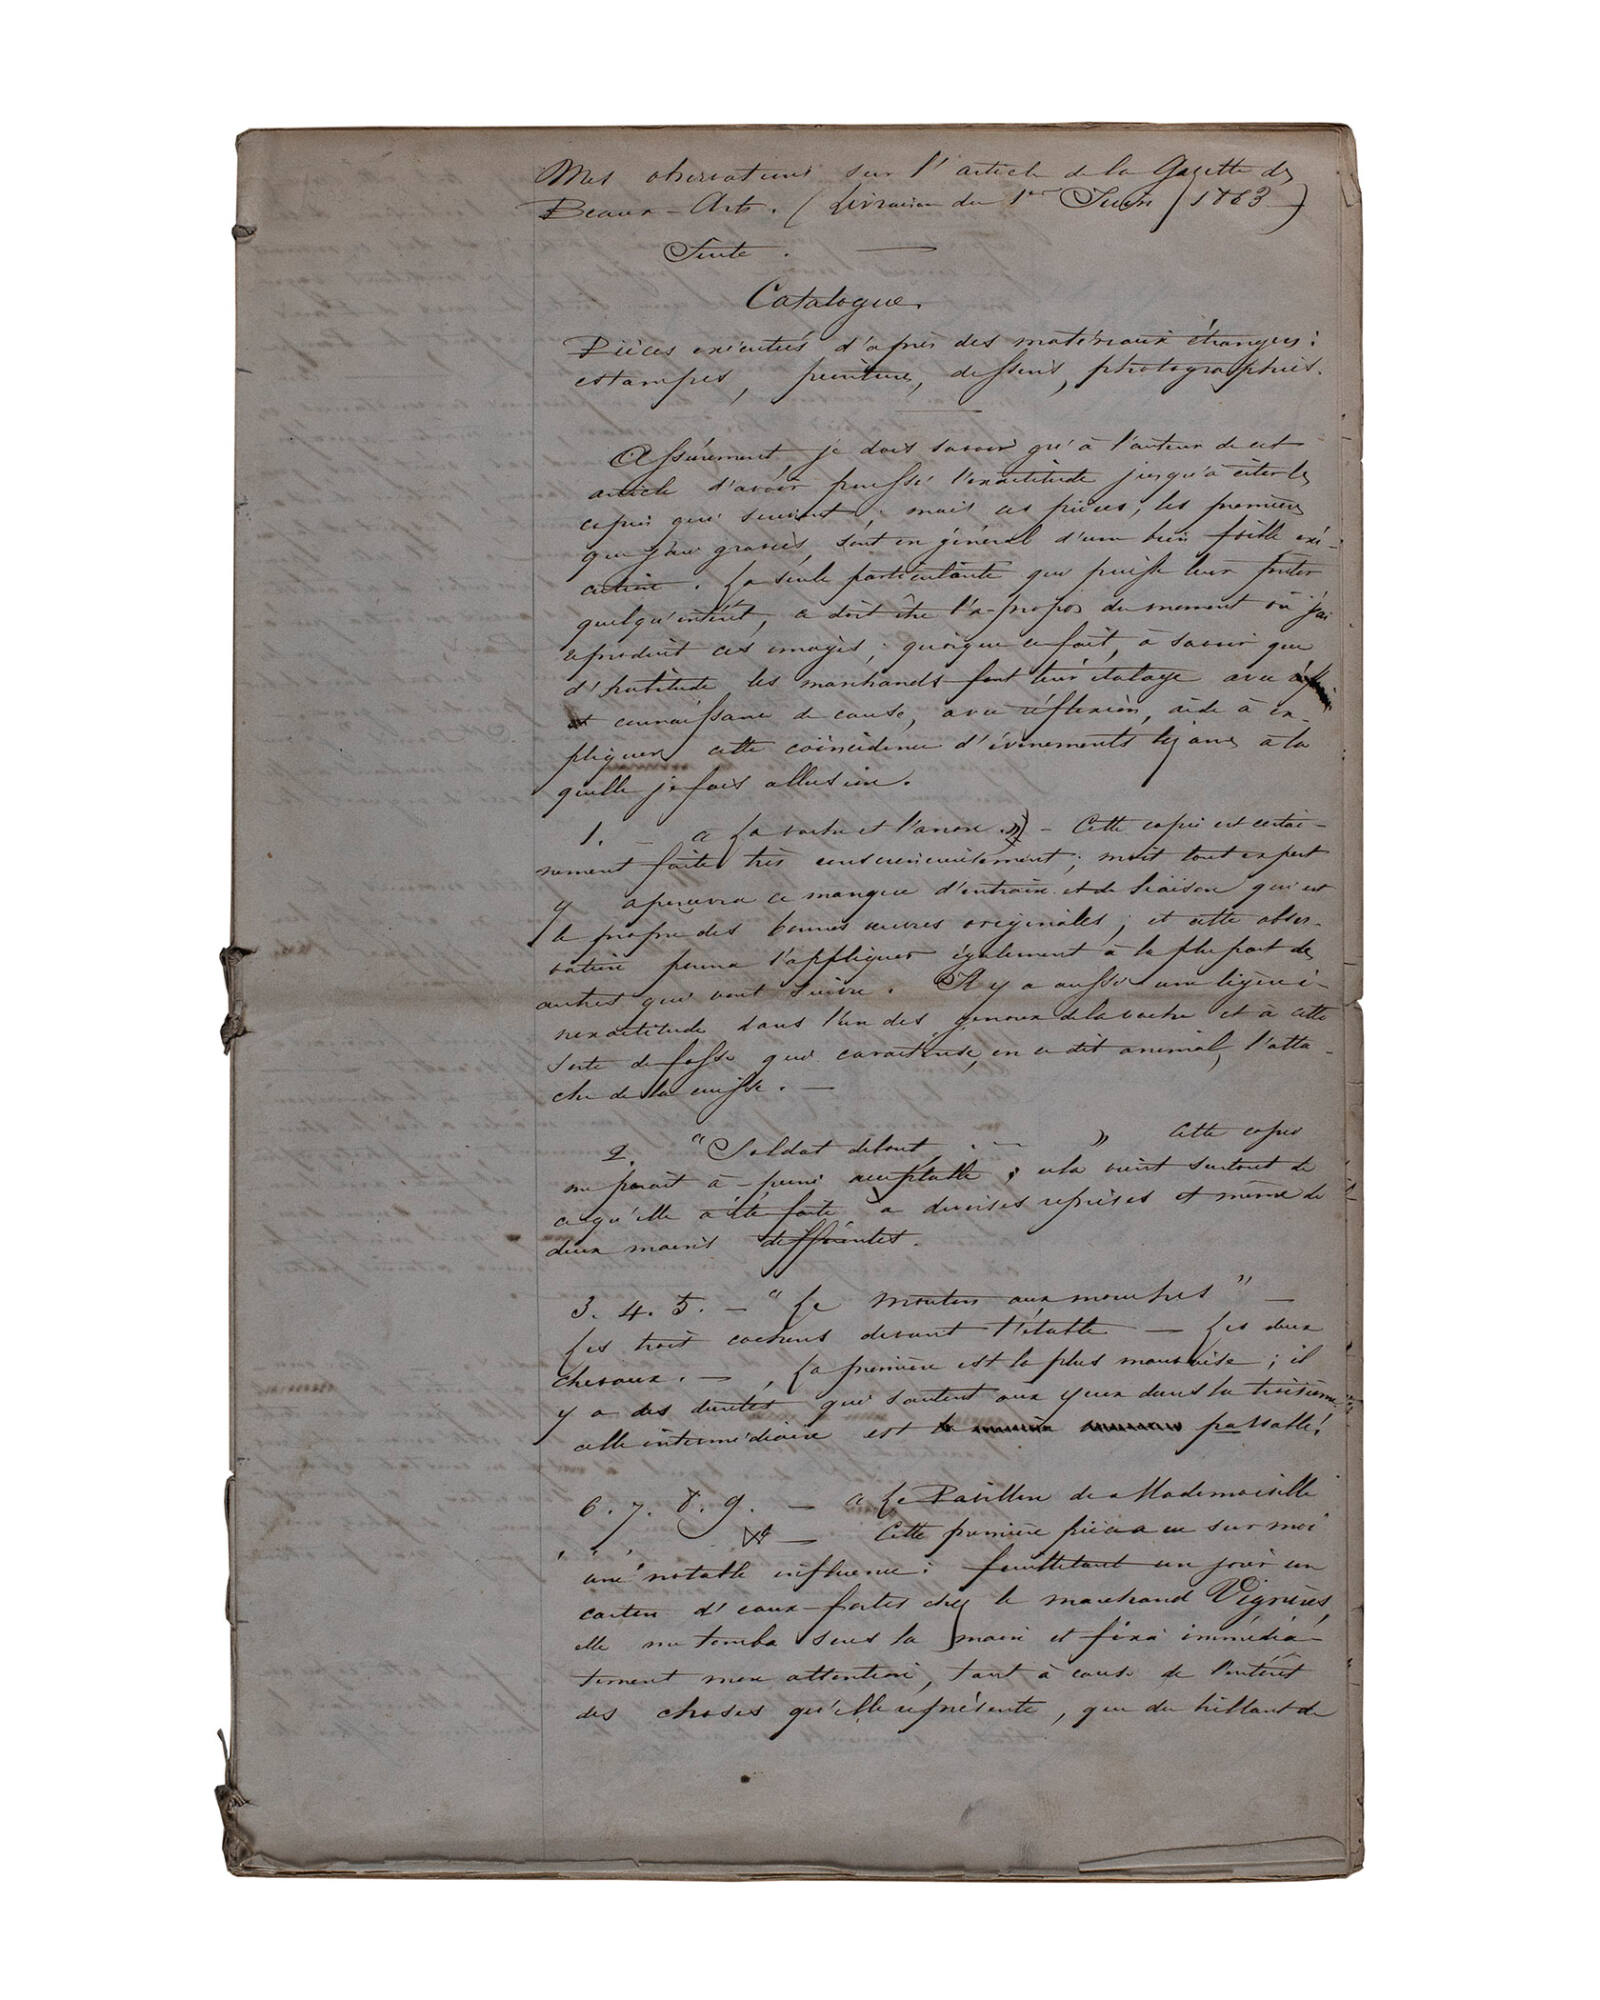 Mes observations sur l'article de la Gazette des
Beaux-Arts. (Livraison du 1er Juin 1863)
Suite.
Catalogue.
Pièces exécutées d'après des matériaux étrangers:
estampes, peinture, dessins, photographies.
Assurément je dois savoir gré à l'auteur de cet
article d'avoir poussé l'exactitude jusqu'à citer les
copies qui suivent; mais ces pièces, les premières
que j'aie gravées, sont en général d'une bien faible exé-
cution. La seule particularité qui puisse leur prêter
quelqu'intérêt, ce doit être l'à-propos du moment où j'ai
reproduit ces images; quoique ce fait, à savoir que
d'habitude les marchands font leur étalage avec
et connaissance de cause, avec réflexion, aide à ex-
pliquer cette coïncidence d'évènements légers à la
quelle je fais allusion.
1. — « La vache et l'ânon ») - Cette copie est certai-
nement faite très consciencieusement; mais tout expert
y apercevra ce manque d'entrain et de liaison qui est
le propre des bonnes œuvres originales; et cette obser-
vation pourra s'appliquer également à la plupart des
autres qui vont suivre. Il y a aussi une légère i-
nexactitude dans l'un des genoux de la vache et à cette
sorte de fosse qui caractérise, en ce dit animal, l'atta-
che de la cuisse. —
2. "Soldat debout, . — " Cette copie
me paraît à-peine acceptable; cela vient surtout de
ce qu'elle a été faite à diverses reprises et même de
deux mains différentes.
3. 4. 5. — "Le mouton aux mouches" —
Les trois cochons devant l'étable — Les deux
chevaux. —, La première est la plus mauvaise; il
y a des duretés qui sautent aux yeux dans la troisième
celle intermédiaire est passable!
6. 7. 8. 9. — « Le Pavillon de Mademoiselle
— Cette première pièce a eu sur moi
une notable influence: feuilletant un jour un
carton d'eaux-fortes chez le marchand Vignères,
elle me tomba sous la main et fixa immédia-
tement mon attention, tant à cause de l'intérêt
des choses qu'elle représente, que du brillant de